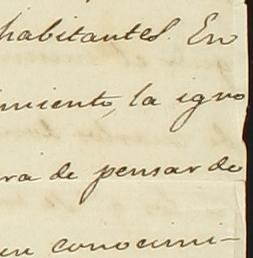 habitantes. En
imiento, la igno
ra de pensar de
en conocimi-